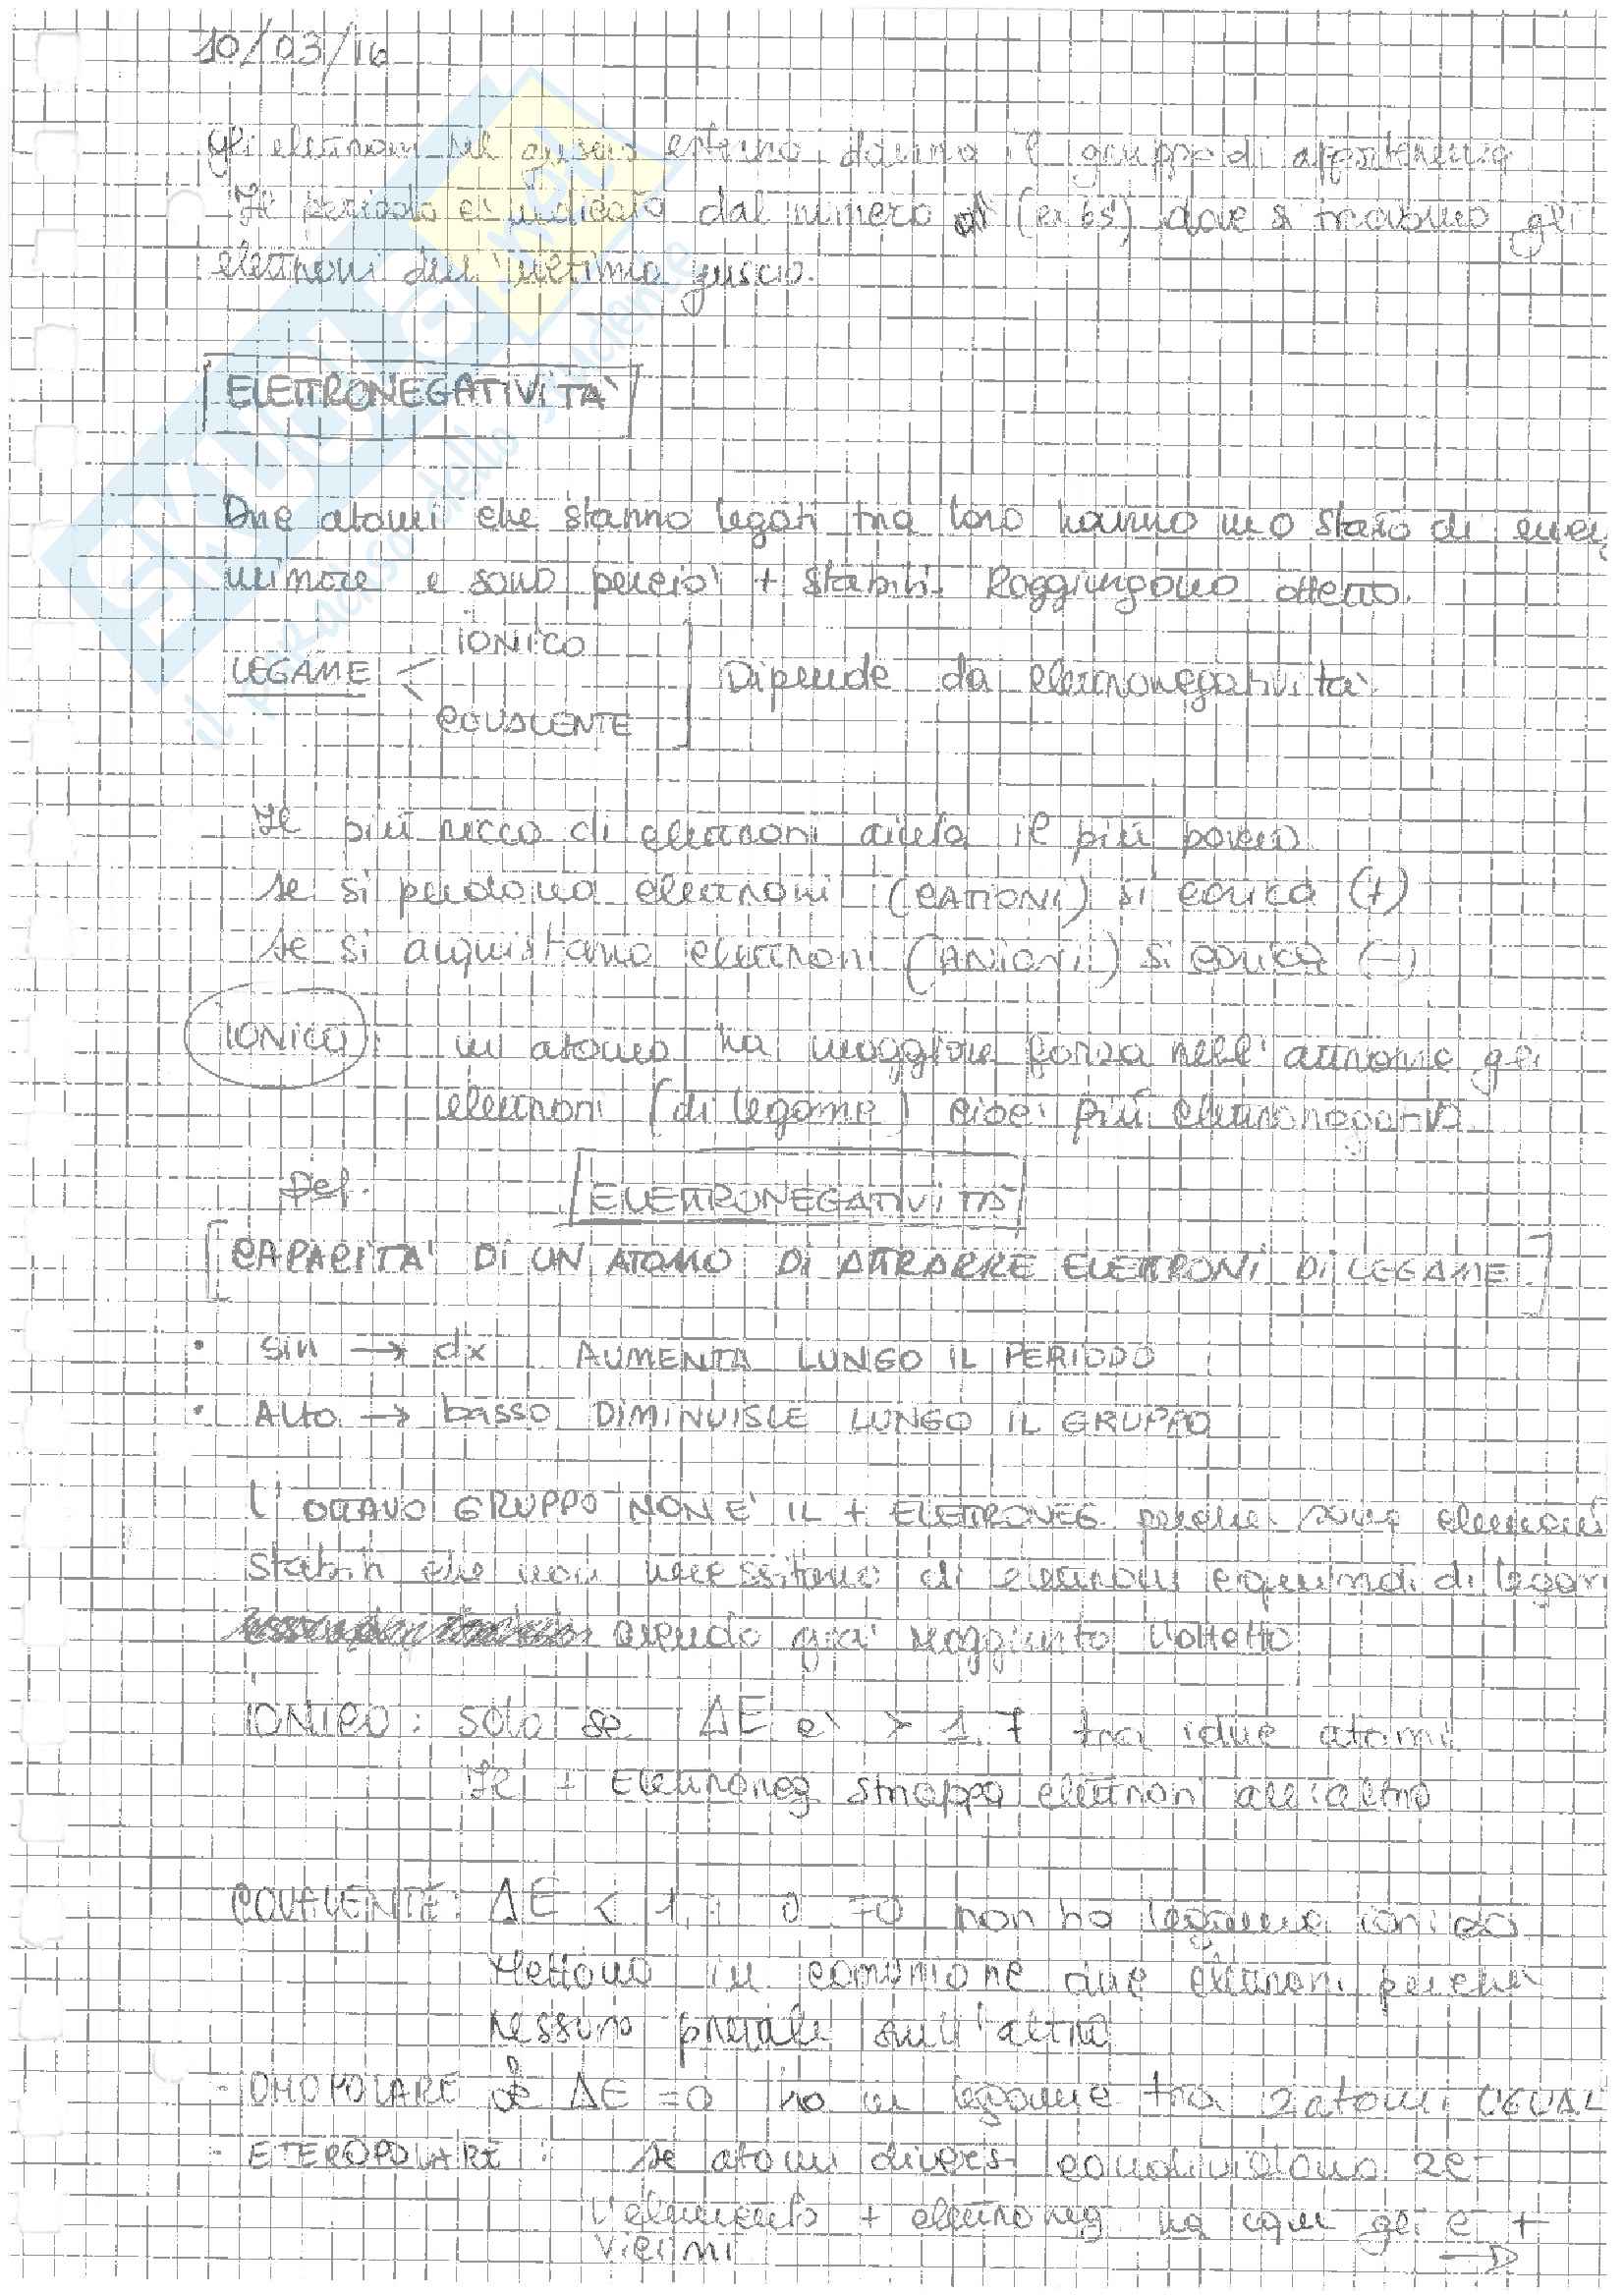 10/03/16
Gli elettroni nel guscio esterno danno il gruppo di appartenenza
Il periodo è indicato dal numero (es 6s) dove si trovano gli
elettroni dell'ultimo guscio.
ELETTRONEGATIVITA'
Due atomi che stanno legati tra loro hanno uno stato di
minore e sono perciò + stabili. Raggiungono ottetto.
IONICO
LEGAME < Dipende da elettronegatività
COVALENTE
Il più ricco di elettroni aiuta il più povero
se si perdono elettroni (CATIONI) si carica (+)
se si acquistano elettroni (ANIONI) si carica (-)
IONICO: un atomo ha maggiore forza nell'attrarre gli
elettroni (di legame) cioè più elettronegativo
Def. ELETTRONEGATIVITÀ
[CAPACITA' DI UN ATOMO DI ATTRARRE ELETTRONI DI LEGAME]
• Sin → dx AUMENTA LUNGO IL PERIODO
• Alto → basso DIMINUISCE LUNGO IL GRUPPO
L'OTTAVO GRUPPO NON E' IL + ELETTRONEG perché sono elementi
stabili che non necessitano di elettroni e quindi di legami
avendo già raggiunto l'ottetto
IONICO: Solo se ΔE è > 1,7 tra i due atomi
Il + Elettroneg strappa elettroni all'altro
COVALENTE: ΔE < 1,7 o =0 non ho legame ionico
Mettono in comunione due elettroni perché
nessuno prevale sull'altro
- OMOPOLARE se ΔE =0 ho un legame tra 2 atomi UGUAL
- ETEROPOLARE: se atomi diversi condividono 2e-
l'elemento + elettroneg ha gli e- +
vicini →
il paradiso dello studente